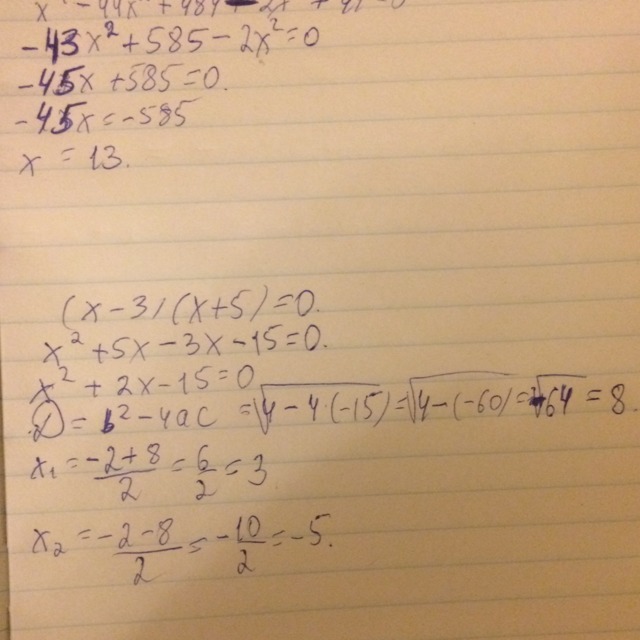 -43x² + 585 - 2x² = 0
-45x + 585 = 0.
-45x = -585
x = 13.
(x-3)(x+5) = 0.
x² + 5x - 3x - 15 = 0.
x² + 2x - 15 = 0
D = b² - 4ac = √4 - 4(-15) = √4 - (-60) = √64 = 8.
x₁ = (-2+8)/2 = 6/2 = 3
x₂ = (-2-8)/2 = -10/2 = -5.